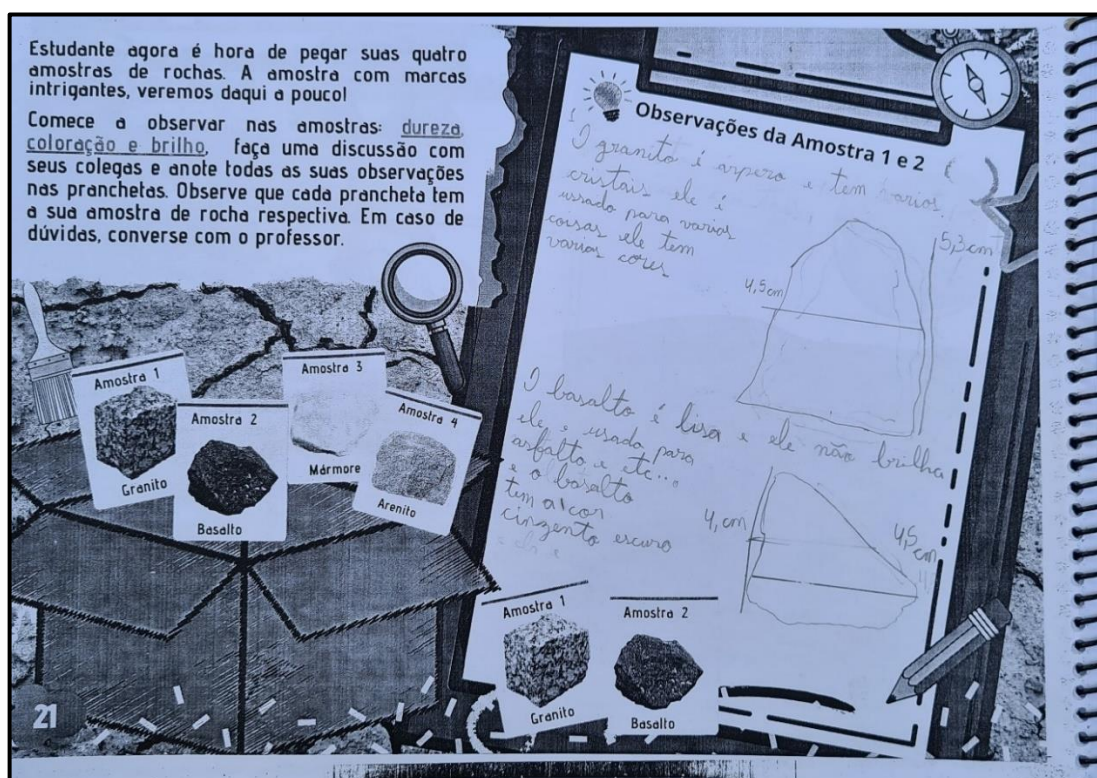 Estudante agora é hora de pegar suas quatro
amostras de rochas. A amostra com marcas
intrigantes, veremos daqui a pouco!
Comece a observar nas amostras: dureza,
coloração e brilho, faça uma discussão com
seus colegas e anote todas as suas observações
nas pranchetas. Observe que cada prancheta tem
a sua amostra de rocha respectiva. Em caso de
dúvidas, converse com o professor.
Amostra 1
Granito
Amostra 2
Basalto
Amostra 3
Mármore
Amostra 4
Arenito
21
Observações da Amostra 1 e 2
O granito é áspero e tem varios
cristais ele é
ussado para varias
coisas ele tem
varias cores
4,5cm
5,3cm
O basalto é lisa e ele não brilha
ele é usada para
asfalto e etc...
e o basalto
tem a cor
cinzento escuro
4,cm
4,5
cm
Amostra 1
Granito
Amostra 2
Basalto